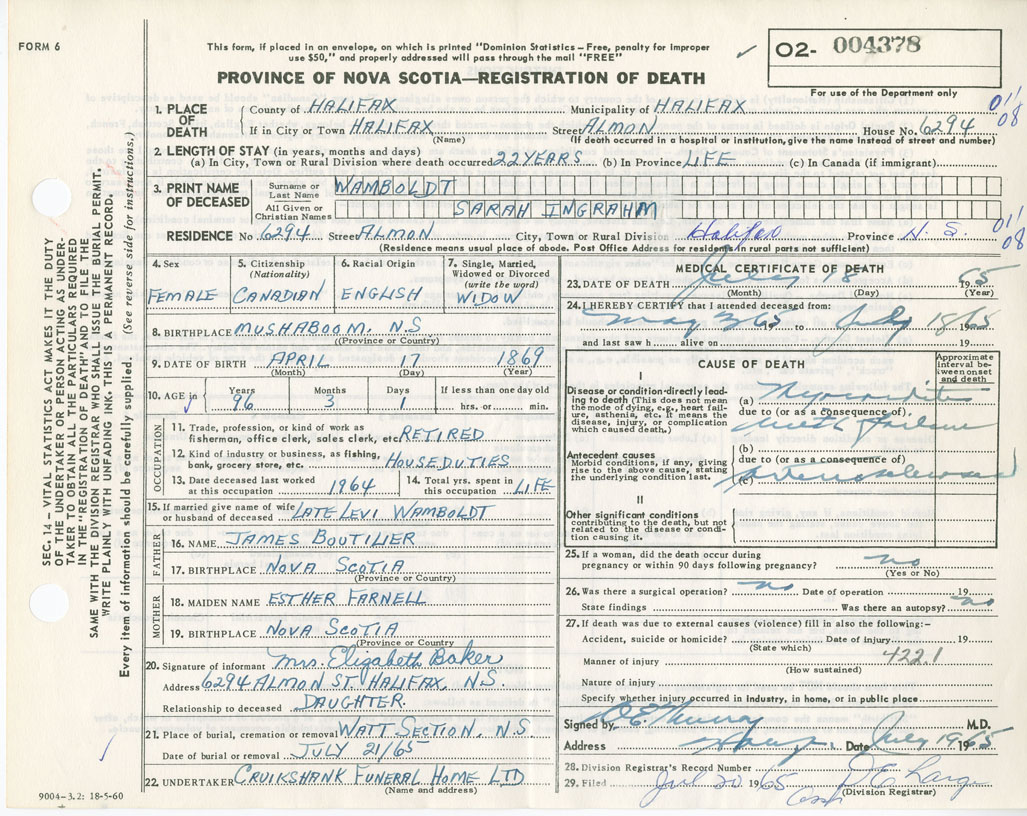 FORM 6
This form, if placed in an envelope, on which is printed "Dominion Statistics—Free, penalty for improper
use $50," and properly addressed will pass through the mail "FREE"
✓
O2- 004378
For use of the Department only
PROVINCE OF NOVA SCOTIA—REGISTRATION OF DEATH
011
08
1. PLACE OF DEATH
County of HALIFAX Municipality of HALIFAX
If in City or Town HALIFAX Street ALMON House No. 6294
(Name) (If death occurred in a hospital or institution, give the name instead of street and number)
2. LENGTH OF STAY (in years, months and days)
(a) In City, Town or Rural Division where death occurred 22 YEARS (b) In Province LIFE (c) In Canada (if immigrant)
3. PRINT NAME OF DECEASED
Surname or Last Name WAMBOLDT
All Given or Christian Names SARAH INGRAHM
RESIDENCE No. 6294 Street ALMON City, Town or Rural Division Halifax Province N.S.
011
08
(Residence means usual place of abode. Post Office Address for residents in rural parts not sufficient)
4. Sex FEMALE
5. Citizenship (Nationality) CANADIAN
6. Racial Origin ENGLISH
7. Single, Married, Widowed or Divorced (write the word) WIDOW
8. BIRTHPLACE MUSHABOOM, N.S
(Province or Country)
9. DATE OF BIRTH APRIL 17 1869
(Month) (Day) (Year)
10. AGE in Years 96 Months 3 Days 1 If less than one day old hrs. or min.
OCCUPATION
11. Trade, profession, or kind of work as
fisherman, office clerk, sales clerk, etc. RETIRED
12. Kind of industry or business, as fishing,
bank, grocery store, etc. HOUSE DUTIES
13. Date deceased last worked at this occupation 1964
14. Total yrs. spent in this occupation LIFE
15. If married give name of wife
or husband of deceased LATE LEVI WAMBOLDT
FATHER
16. NAME JAMES BOUTILIER
17. BIRTHPLACE NOVA SCOTIA
(Province or Country)
MOTHER
18. MAIDEN NAME ESTHER FARNELL
19. BIRTHPLACE NOVA SCOTIA
(Province or Country)
20. Signature of informant Mrs. Elizabeth Baker
Address 6294 ALMON ST. HALIFAX, N.S.
Relationship to deceased DAUGHTER.
21. Place of burial, cremation or removal WATT SECTION, N.S
Date of burial or removal JULY 21/65
22. UNDERTAKER CRUIKSHANK FUNERAL HOME LTD
(Name and address)
MEDICAL CERTIFICATE OF DEATH
23. DATE OF DEATH July 18 1965
(Month) (Day) (Year)
24. I HEREBY CERTIFY that I attended deceased from:
May 3/65 to July 18 1965
and last saw h alive on 19
CAUSE OF DEATH
Approximate interval between onset and death
I
Disease or condition directly leading to death (This does not mean
the mode of dying, e.g., heart failure, asthenia, etc. It means the
disease, injury, or complication which caused death,)
(a) Myocarditis
due to (or as a consequence of)
with failure
Antecedent causes
Morbid conditions, if any, giving
rise to the above cause, stating
the underlying condition last.
(b)
due to (or as a consequence of)
(c)
II
Other significant conditions
contributing to the death, but not
related to the disease or condition causing it.
25. If a woman, did the death occur during
pregnancy or within 90 days following pregnancy? no
(Yes or No)
26. Was there a surgical operation? no Date of operation
State findings Was there an autopsy? no
27. If death was due to external causes (violence) fill in also the following:—
Accident, suicide or homicide? Date of injury 19
(State which)
Manner of injury 422.1
(How sustained)
Nature of injury
Specify whether injury occurred in Industry, in home, or in public place
Signed by Murray M.D.
Address Date July 19 1965
28. Division Registrar's Record Number
29. Filed Jul 20 1965
(Division Registrar)
SEC. 14 — VITAL STATISTICS ACT MAKES IT THE DUTY
OF THE UNDERTAKER OR PERSON ACTING AS UNDER-
TAKER TO OBTAIN ALL THE PARTICULARS REQUIRED
IN THE "REGISTRATION OF DEATH" AND TO FILE THE
SAME WITH THE DIVISION REGISTRAR WHO SHALL ISSUE THE BURIAL PERMIT.
WRITE PLAINLY WITH UNFADING INK. THIS IS A PERMANENT RECORD.
Every item of information should be carefully supplied. (See reverse side for instructions.)
9004-3.2: 18-5-60